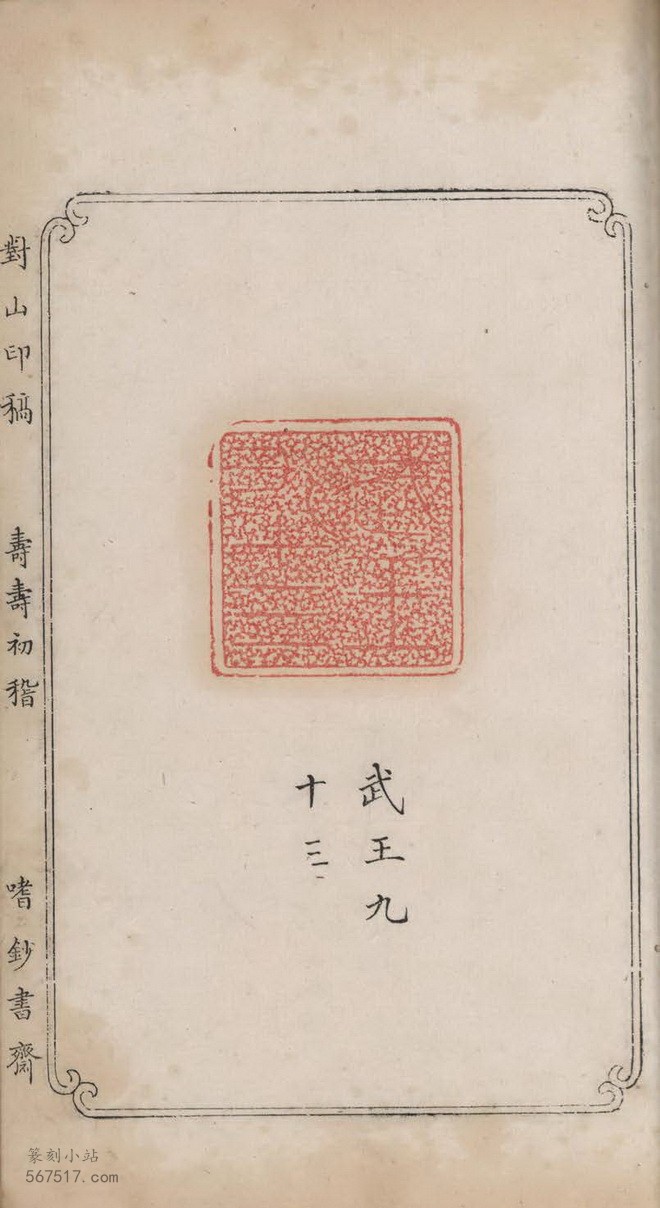 武王九
十三
對山印稿 壽壽初稽 嗜鈔書齋
篆刻小站
567517.com